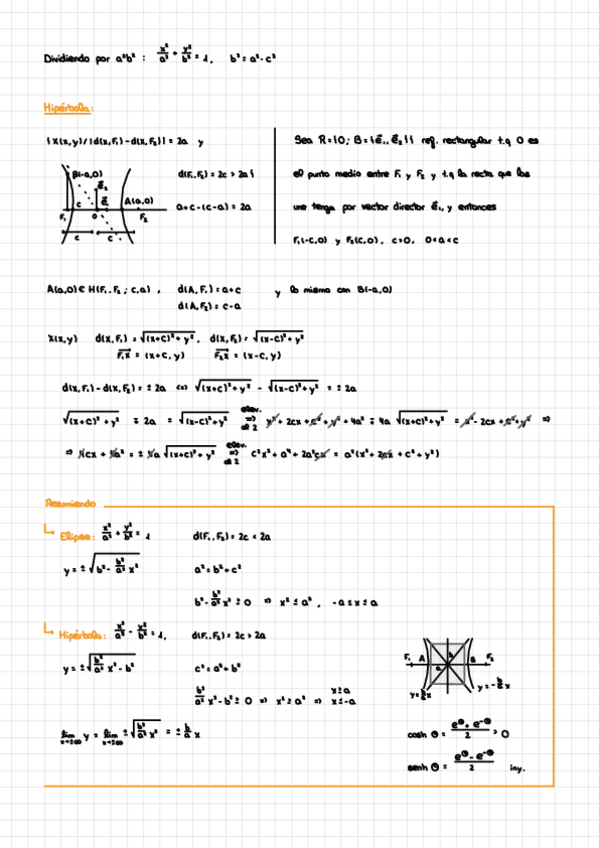 Dividiendo por a²b² : x²/a² + y²/b² = 1, b² = a² - c²
Hipérbola:
{X(x,y) / |d(x,F₁) - d(x,F₂)| = 2a y
d(F₁,F₂) = 2c > 2a}
a+c-(c-a) = 2a
B(-a,0)
A(a,0)
F₁ O F₂
c c
Sea R={O; B={e⃗₁, e⃗₂}} ref. rectangular t.q O es
el punto medio entre F₁ y F₂ y t.q la recta que los
une tenga por vector director e⃗₁, y entonces
F₁(-c,0) y F₂(c,0), c>0, 0<a<c
A(a,0) ∈ H(F₁,F₂; c,a), d(A,F₁) = a+c y lo mismo con B(-a,0)
d(A,F₂) = c-a
X(x,y) d(x,F₁) = √((x+c)² + y²), d(x,F₂) = √((x-c)² + y²)
F₁X = (x+c, y) F₂X = (x-c, y)
d(x,F₁) - d(x,F₂) = ± 2a ⇔ √((x+c)² + y²) - √((x-c)² + y²) = ± 2a
√((x+c)² + y²) ∓ 2a = √((x-c)² + y²) elev. ⇒ al 2 x² + 2cx + c² + y² + 4a² ∓ 4a √((x+c)² + y²) = x² - 2cx + c² + y² ⇒
⇒ 4cx + 4a² = ± 4a √((x+c)² + y²) elev. ⇒ al 2 c²x² + a⁴ + 2a²cx = a²(x² + 2cx + c² + y²)
Resumiendo
Elipse: x²/a² + y²/b² = 1 d(F₁,F₂) = 2c < 2a
y = ± √(b² - b²/a² x²) a² = b² + c²
b² - b²/a² x² ≥ 0 ⇒ x² ≤ a², -a ≤ x ≤ a
Hipérbola: x²/a² - y²/b² = 1, d(F₁,F₂) = 2c > 2a
y = ± √(b²/a² x² - b²) c² = a² + b²
b²/a² x² - b² ≥ 0 ⇒ x² ≥ a² ⇒ x ≥ a
x ≤ -a
lim x→±∞ y = lim x→±∞ ± √(b²/a² x²) = ± b/a x
F₁ A b B F₂
a
y = b/a x y = - b/a x
cosh Θ = (e^Θ + e^-Θ)/2 > 0
senh Θ = (e^Θ - e^-Θ)/2 iny.